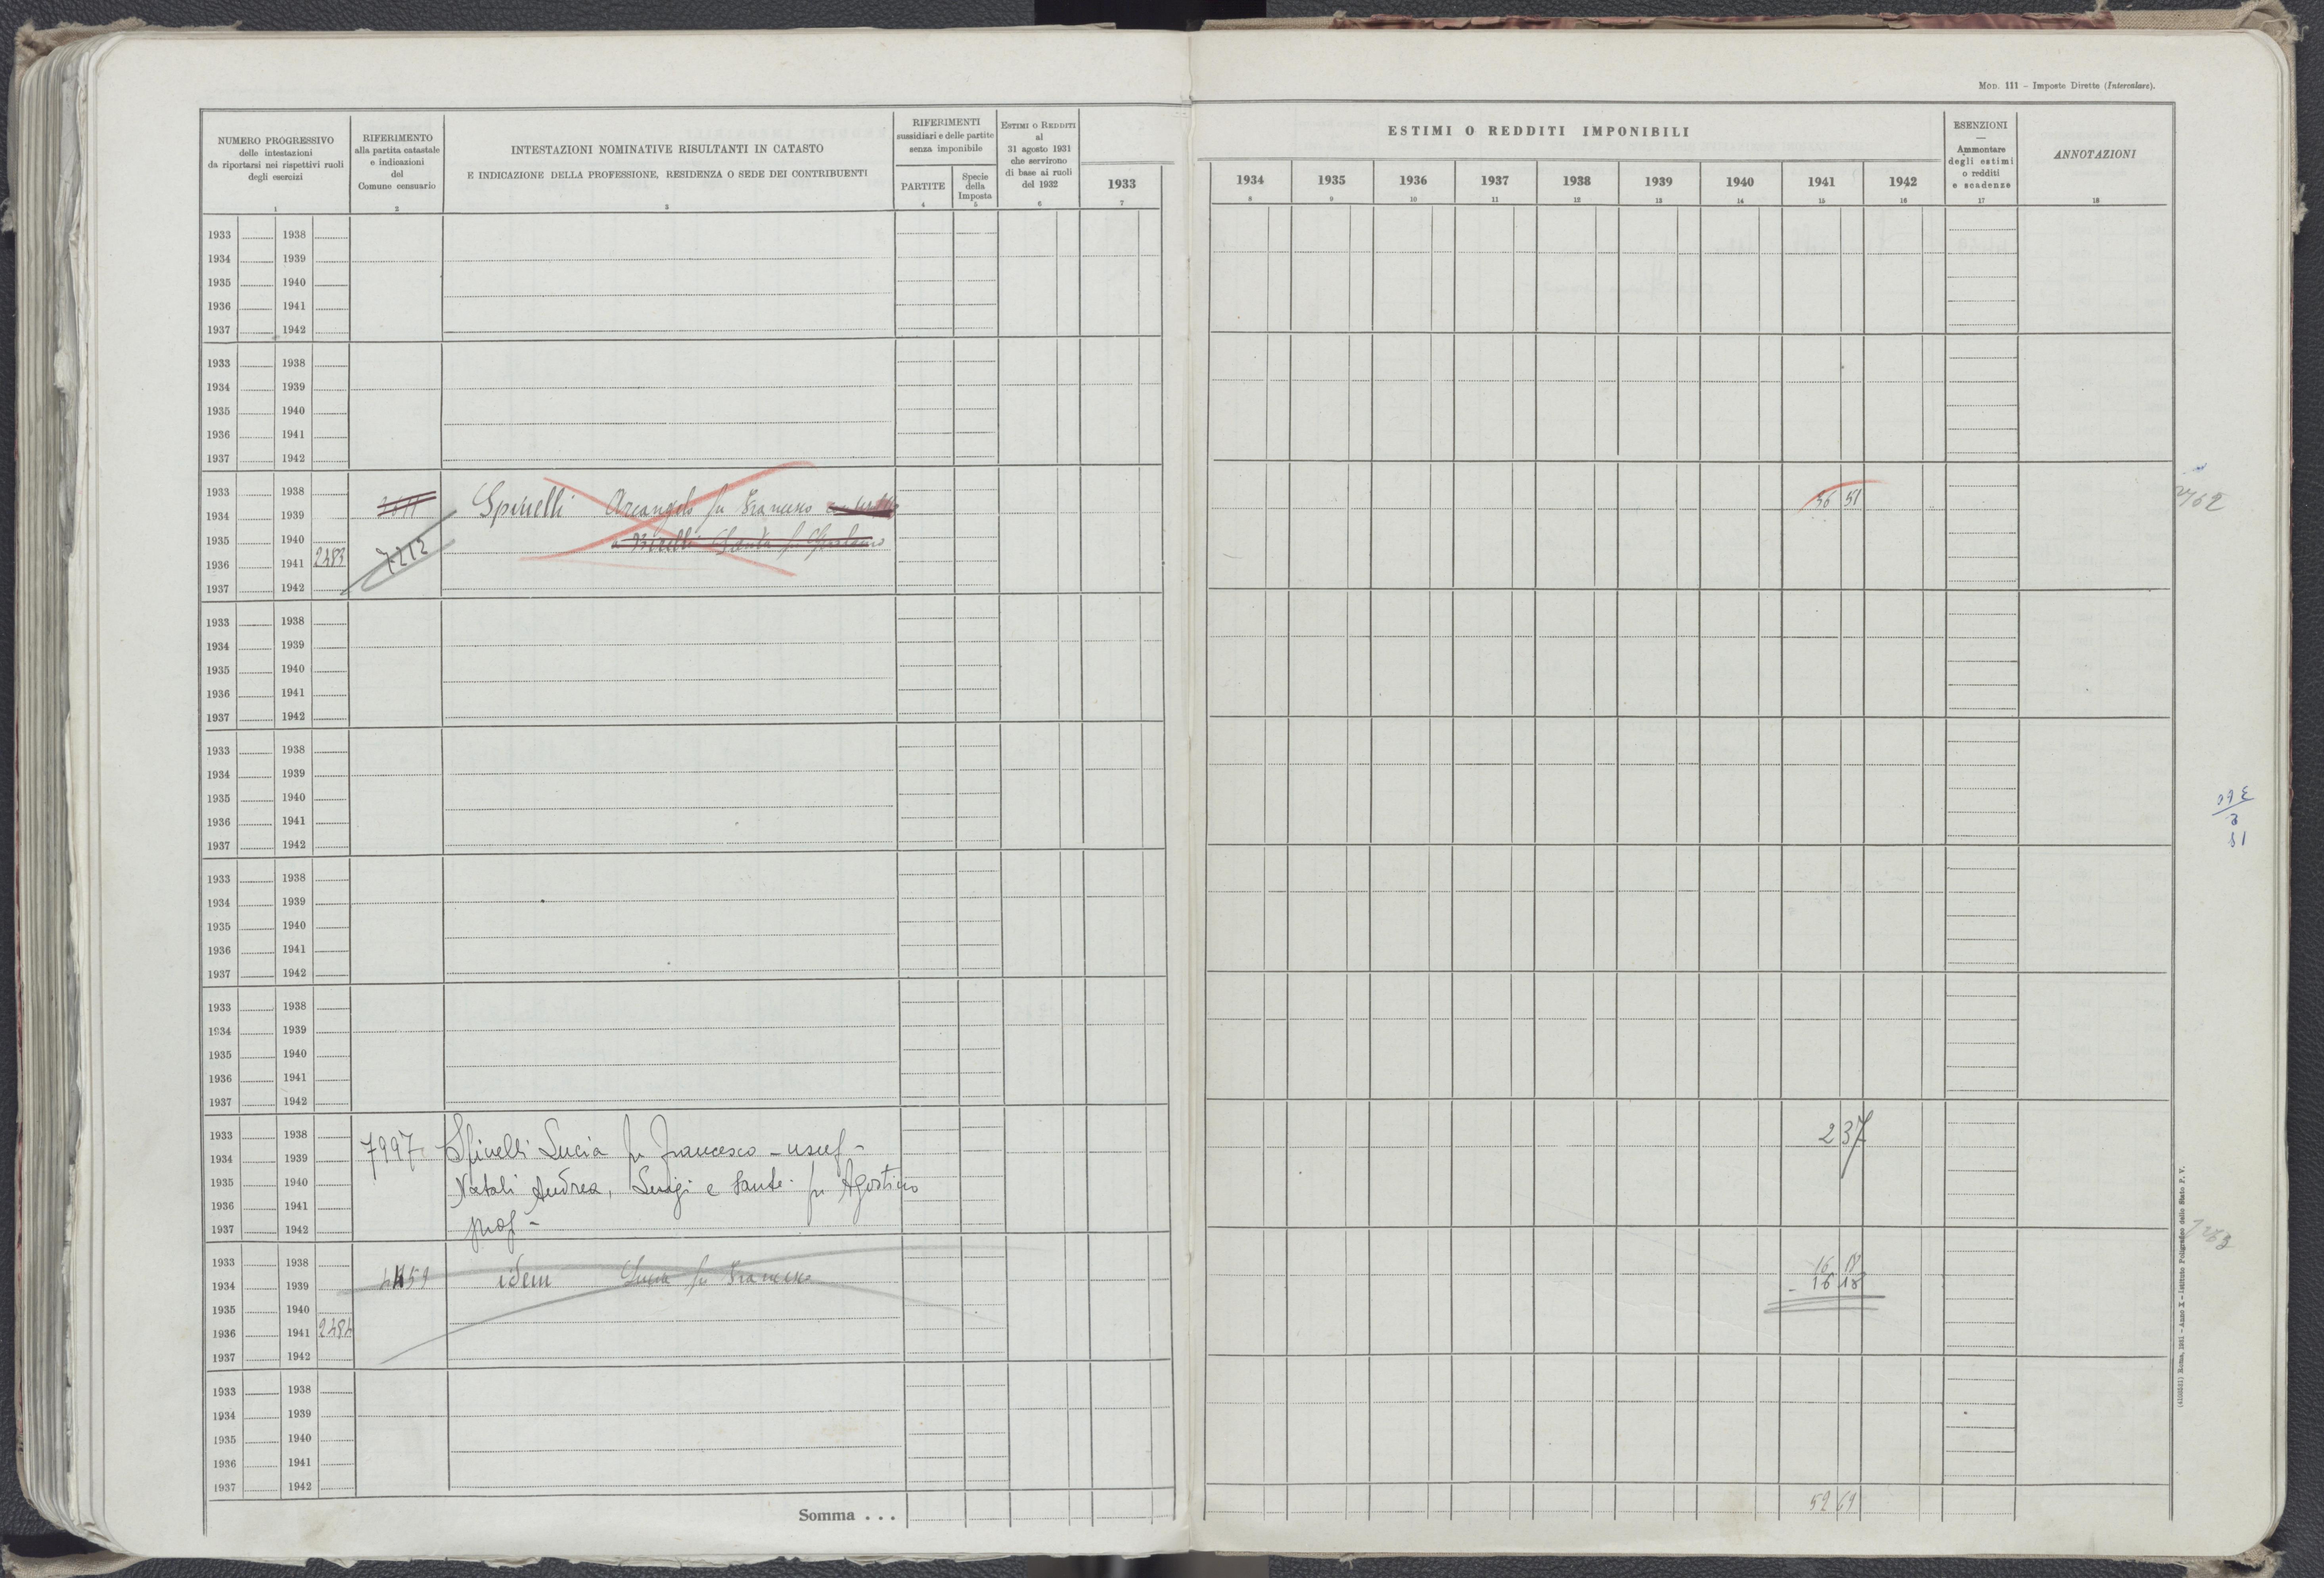 Mod. 111 – Imposte Dirette (Intercalare).
NUMERO PROGRESSIVO
delle intestazioni
da riportarsi nei rispettivi ruoli
degli esercizi
1
RIFERIMENTO
alla partita catastale
e indicazioni
del
Comune censuario
2
INTESTAZIONI NOMINATIVE RISULTANTI IN CATASTO
E INDICAZIONE DELLA PROFESSIONE, RESIDENZA O SEDE DEI CONTRIBUENTI
3
RIFERIMENTI
sussidiari e delle partite
senza imponibile
PARTITE
4
Specie
della
Imposta
5
Estimi o Redditi
al
31 agosto 1931
che servirono
di base ai ruoli
del 1932
6
1933
7
ESTIMI O REDDITI IMPONIBILI
1934 1935 1936 1937 1938 1939 1940 1941 1942
8 9 10 11 12 13 14 15 16
ESENZIONI
—
Ammontare
degli estimi
o redditi
e scadenze
17
ANNOTAZIONI
18
1933 1938
1934 1939
1935 1940
1936 1941
1937 1942
1933 1938
1934 1939
1935 1940
1936 1941
1937 1942
1933 1938
1934 1939 Spinelli Arcangelo fu Francesco 36 51
1935 1940 7212
1936 1941 2483
1937 1942
1933 1938
1934 1939
1935 1940
1936 1941
1937 1942
1933 1938
1934 1939
1935 1940
1936 1941
1937 1942
1933 1938
1934 1939
1935 1940
1936 1941
1937 1942
1933 1938
1934 1939
1935 1940
1936 1941
1937 1942
1933 1938 7997 Spinelli Lucia fu Francesco - usuf - 237
1934 1939
1935 1940 Natali Andrea, Luigi e Sante fu Agostino
1936 1941
1937 1942 prof -
1933 1938 16 18
1934 1939 idem Lucia fu Francesco - 16 18
1935 1940
1936 1941 2484
1937 1942
1933 1938
1934 1939
1935 1940
1936 1941
1937 1942
Somma . . . 52 69
(4100351) Roma, 1931 - Anno X - Istituto Poligrafico dello Stato P. V.